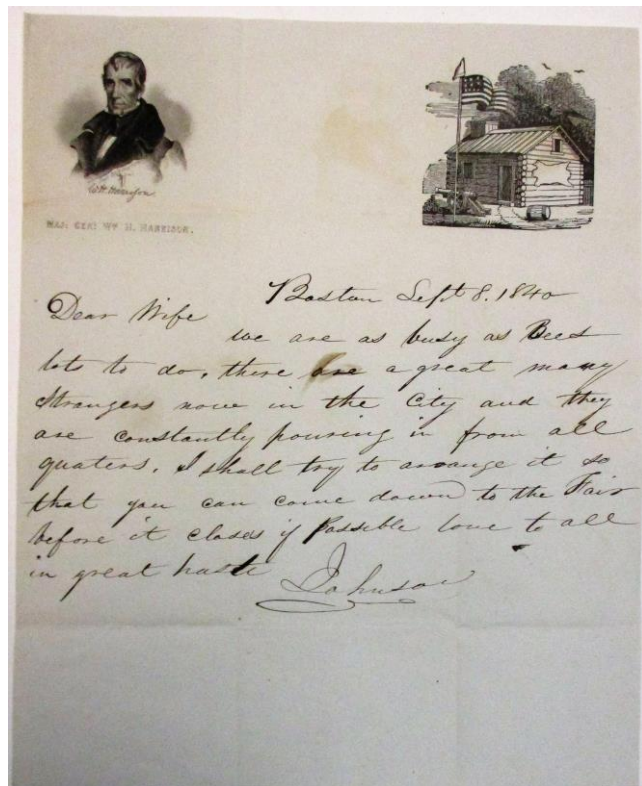 Wm. H. Harrison
MAJ. GEN: WM H. HARRISON.
Boston Sept 8. 1840
Dear Wife
we are as busy as Bees
lots to do, there are a great many
strangers now in the City and they
are constantly pouring in from all
quaters. I shall try to arrange it so
that you can come down to the Fair
before it closes if Possible love to all
in great haste Johnson